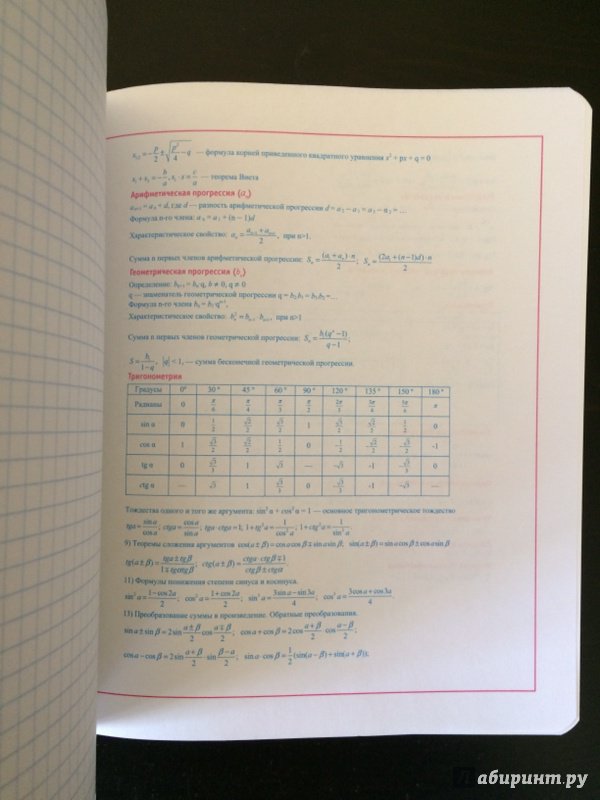 x₁,₂ = −p/2 ± √(p²/4 − q) — формула корней приведенного квадратного уравнения x² + px + q = 0
x₁ + x₂ = −b/a, x₁ · x = c/a — теорема Виета
Арифметическая прогрессия (aₙ)
aₙ₊₁ = aₙ + d, где d — разность арифметической прогрессии d = a₂ − a₁ = a₃ − a₂ = …
Формула n-го члена: aₙ = a₁ + (n − 1)d
Характеристическое свойство: aₙ = (aₙ₋₁ + aₙ₊₁)/2, при n>1.
Сумма n первых членов арифметической прогрессии: Sₙ = (a₁ + aₙ) · n / 2; Sₙ = (2a₁ + (n−1)d) · n / 2
Геометрическая прогрессия (bₙ)
Определение: bₙ₊₁ = bₙ·q, b ≠ 0, q ≠ 0
q — знаменатель геометрической прогрессии q = b₂:b₁ = b₃:b₂ = …
Формула n-го члена bₙ = b₁·qⁿ⁻¹,
Характеристическое свойство: bₙ² = bₙ₋₁ · bₙ₊₁, при n>1
Сумма n первых членов геометрической прогрессии: Sₙ = b₁(qⁿ −1)/(q−1);
S = b₁/(1−q), |q| < 1, — сумма бесконечной геометрической прогрессии.
Тригонометрия
Градусы 0° 30° 45° 60° 90° 120° 135° 150° 180°
Радианы 0 π/6 π/4 π/3 π/2 2π/3 3π/4 5π/6 π
sin α 0 1/2 √2/2 √3/2 1 √3/2 √2/2 1/2 0
cos α 1 √3/2 √2/2 1/2 0 −1/2 −√2/2 −√3/2 -1
tg α 0 √3/3 1 √3 — −√3 -1 −√3/3 0
ctg α √3 1 √3/3 0 −√3/3 -1 −√3 —
Тождества одного и того же аргумента: sin² α + cos² α = 1 — основное тригонометрическое тождество
tgα = sinα/cosα; ctgα = cosα/sinα; tgα · ctgα = 1; 1 + tg²α = 1/cos²α; 1 + ctg²α = 1/sin²α
9) Теоремы сложения аргументов cos(α ± β) = cosα cosβ ∓ sinα sinβ; sin(α ± β) = sinα cosβ ± cosα sinβ
tg(α ± β) = (tgα ± tgβ)/(1 ∓ tgαtgβ); ctg(α ± β) = (ctgα · ctgβ ∓ 1)/(ctgβ ± ctgα)
11) Формулы понижения степени синуса и косинуса.
sin²α = (1−cos2α)/2; cos²α = (1+cos2α)/2; sin³α = (3sinα − sin3α)/4; cos³α = (3cosα + cos3α)/4
13) Преобразование суммы и произведение. Обратные преобразования.
sinα ± sinβ = 2sin (α±β)/2 cos (α∓β)/2; cosα + cosβ = 2cos (α+β)/2 cos (α−β)/2;
cosα − cosβ = 2sin (α+β)/2 · sin (β−α)/2; sinα · cosβ = 1/2 (sin(α − β) + sin(α + β));
Лабиринт.ру